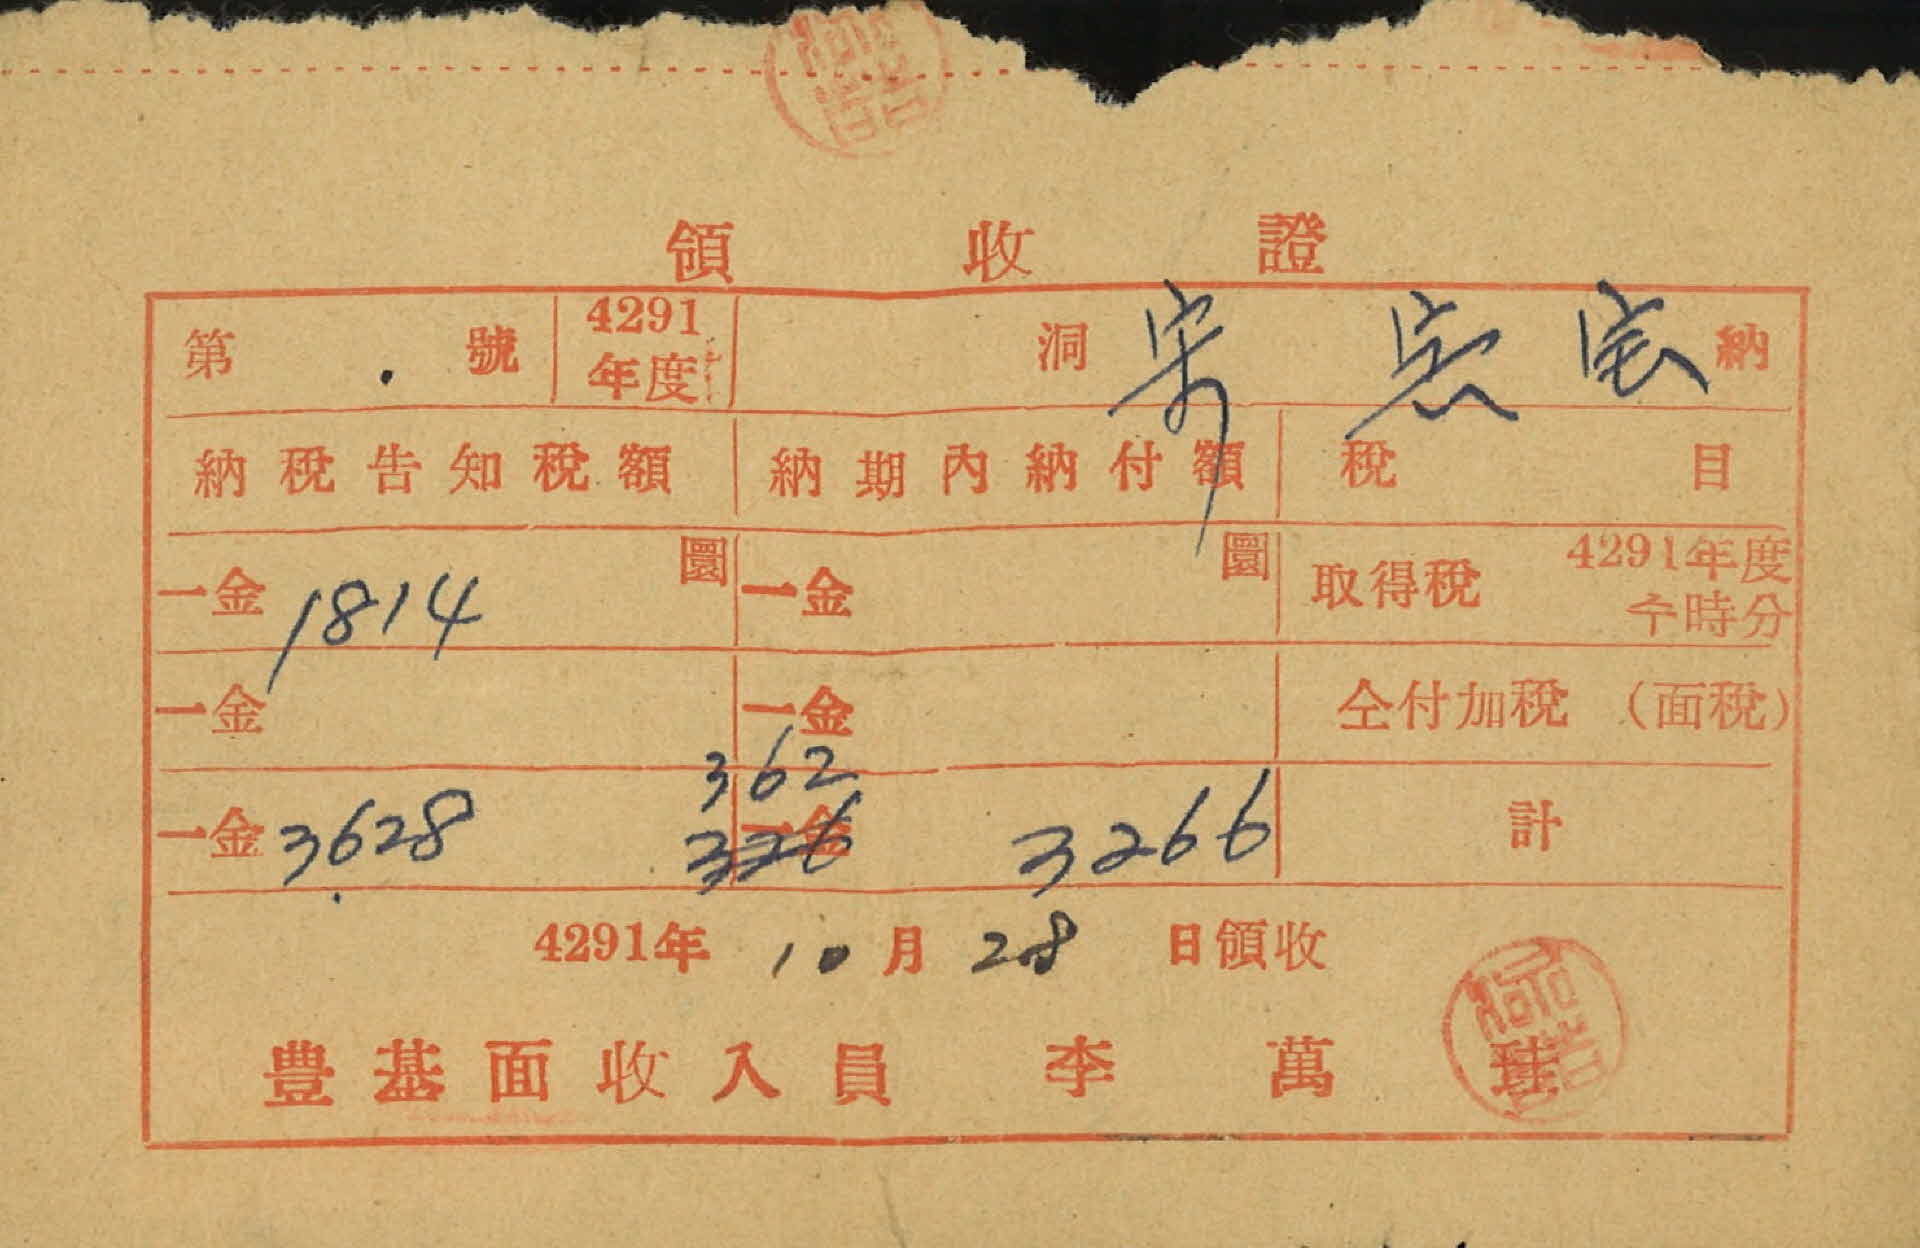 領收證
第 號 4291年度 洞 宋 宅 納
納稅告知稅額 納期內納付額 稅目
一金 1814 圜 一金 圜 取得稅 4291年度 수時分
一金 一金 仝付加稅 (面稅)
362
一金 3628 326 一金 3266 計
4291年 10月 28日領收
豊基面收入員 李萬珪